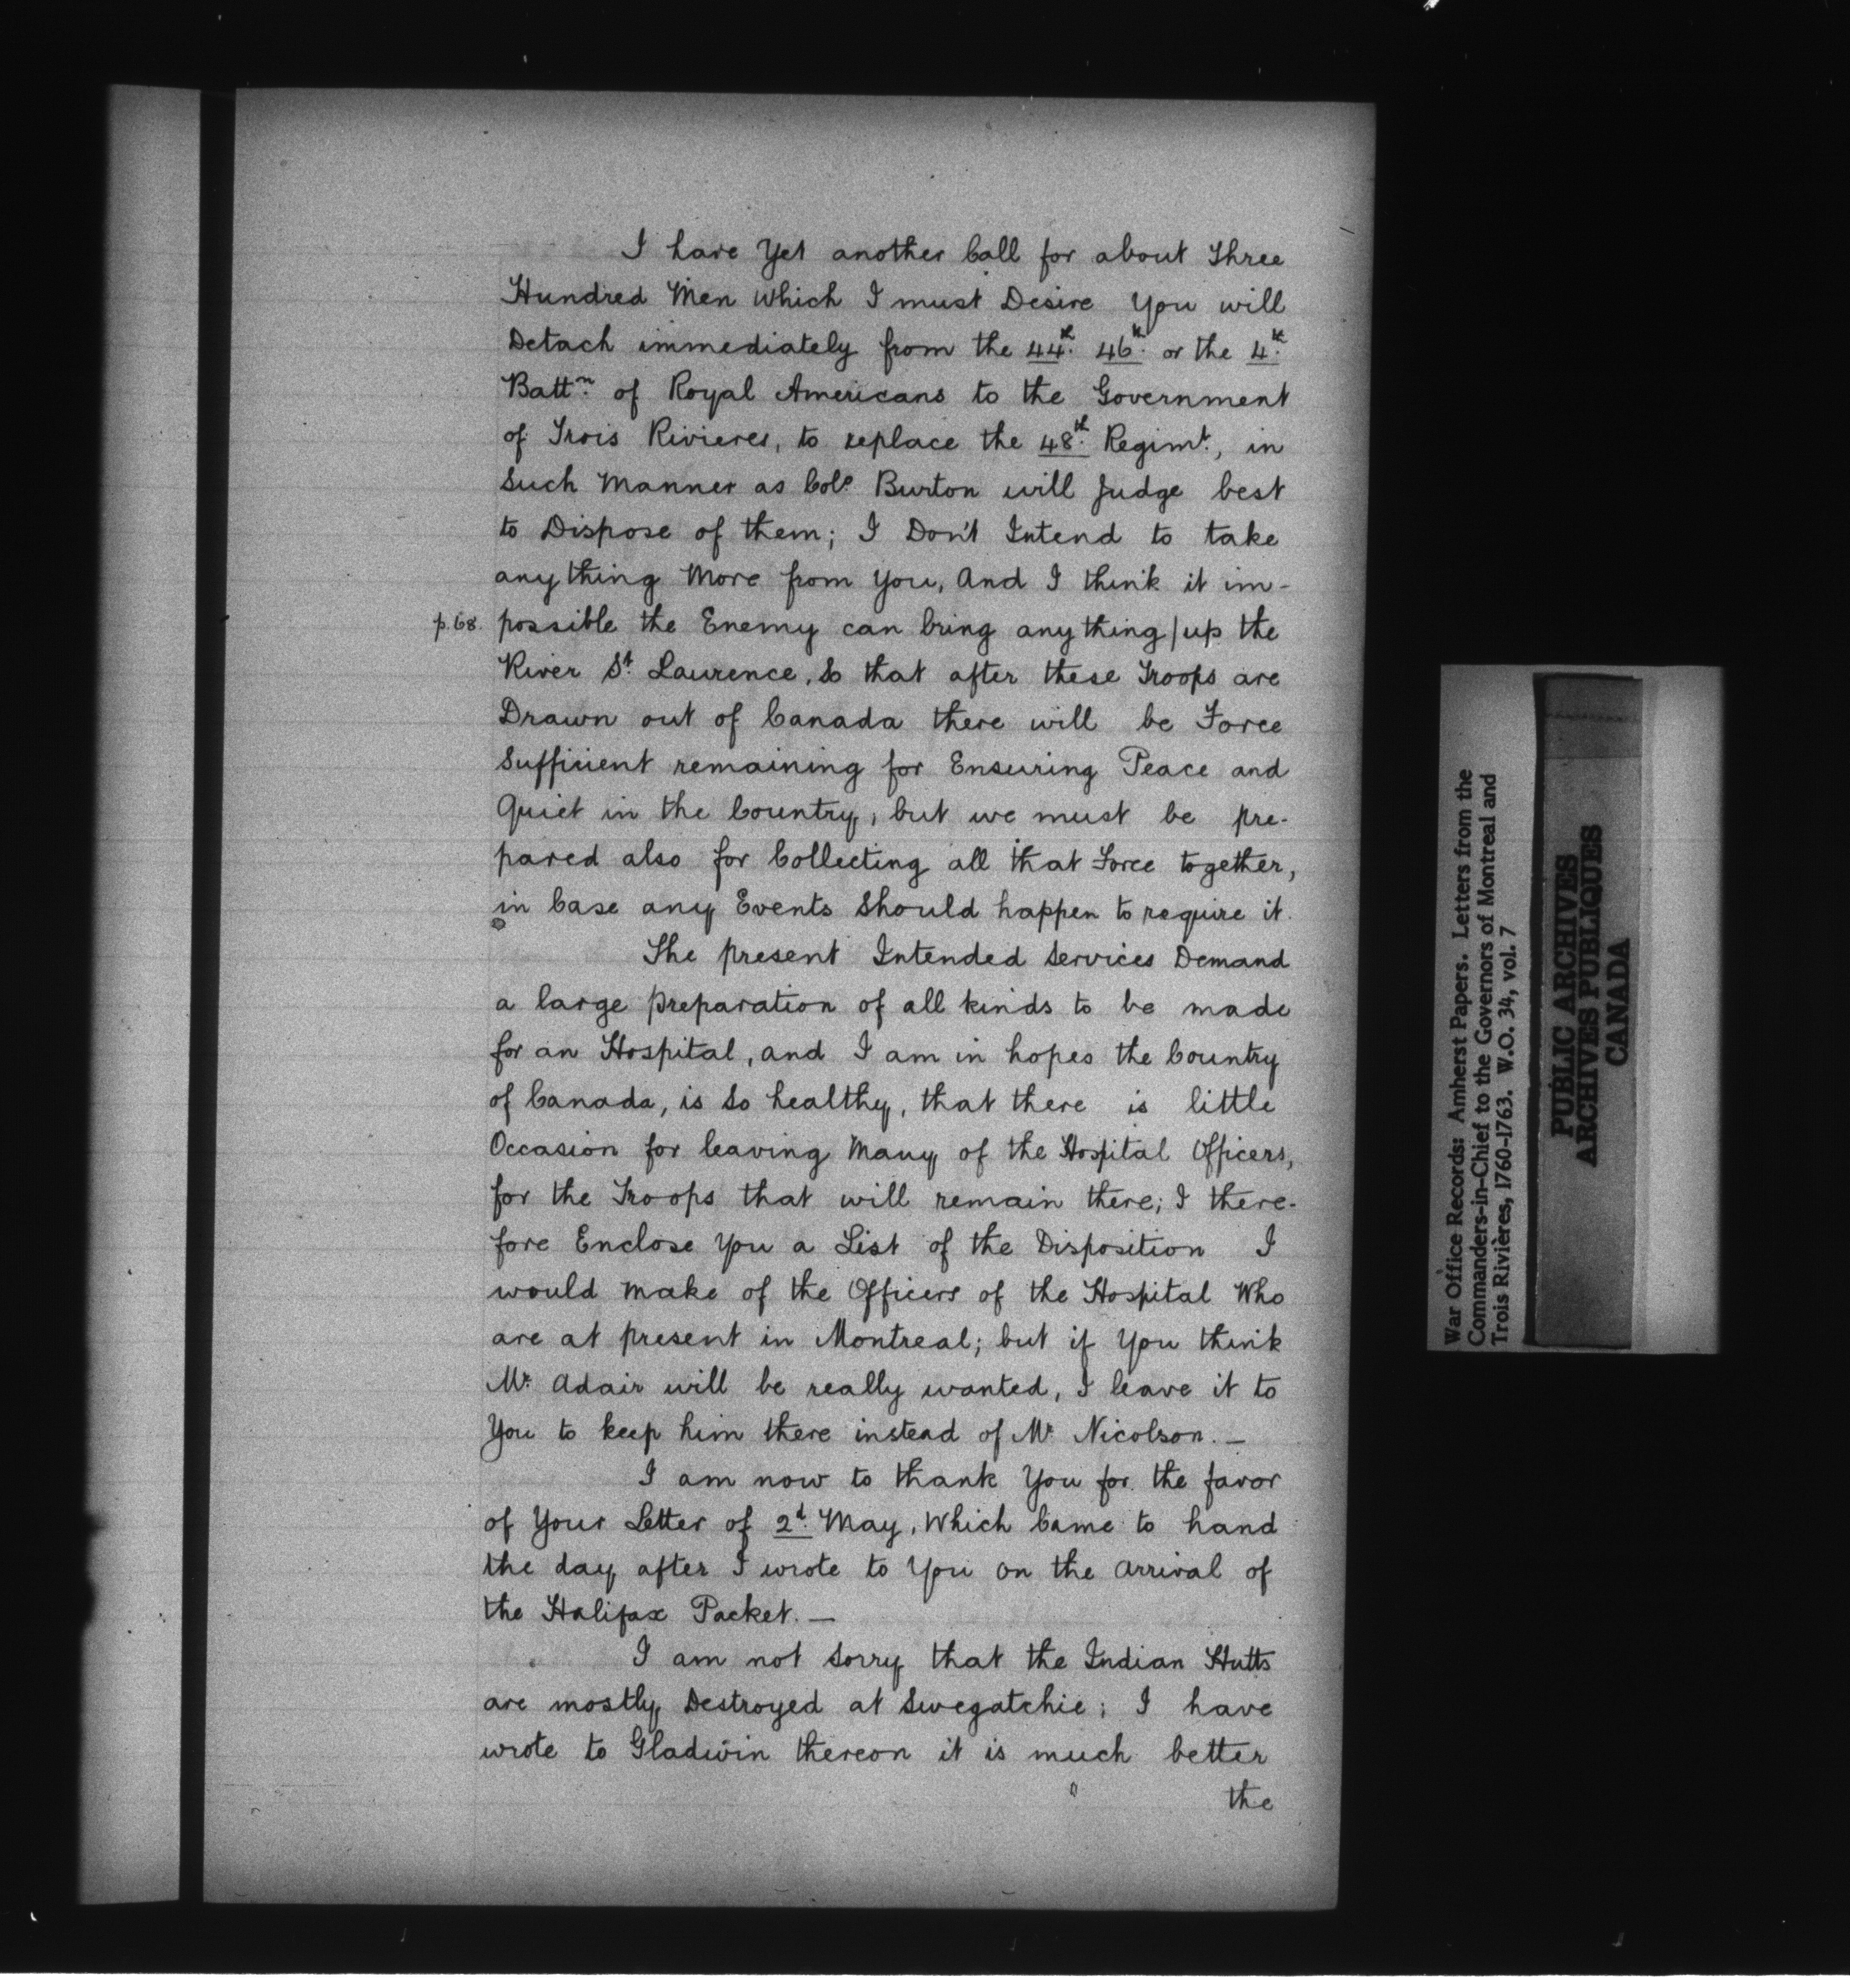 I have Yet another Call for about Three
Hundred Men Which I must Desire You will
Detach immediately from the 44th. 46th. or the 4th.
Battn. of Royal Americans to the Government
of Trois Rivieres, to replace the 48th. Regimt., in
Such Manner as Colo. Burton will Judge best
to Dispose of them; I Don't Intend to take
any thing More from You, And I think it im-
p.68. possible the Enemy can bring any thing/up the
River St. Laurence, So that after these Troops are
Drawn out of Canada there will be Force
Sufficient remaining for Ensuring Peace and
Quiet in the Country, but we must be pre-
pared also for Collecting all that Force together,
in Case any Events Should happen to require it.
The present Intended Services Demand
a large preparation of all kinds to be made
for an Hospital, and I am in hopes the Country
of Canada, is So healthy, that there is little
Occasion for leaving Many of the Hospital Officers,
for the Troops that will remain there; I there-
fore Enclose You a List of the Disposition I
would Make of the Officers of the Hospital Who
are at present in Montreal; but if You think
Mr. Adair will be really wanted, I leave it to
You to keep him there instead of Mr. Nicolson. —
I am now to thank You for the favor
of Your Letter of 2d. May, Which Came to hand
the day after I wrote to You on the Arrival of
the Halifax Packet. —
I am not Sorry that the Indian Hutts
are mostly Destroyed at Swegatchie; I have
wrote to Gladwin thereon it is much better
the
War Office Records: Amherst Papers. Letters from the
Commanders-in-Chief to the Governors of Montreal and
Trois Rivières, 1760-1763. W.O. 34, vol. 7
PUBLIC ARCHIVES
ARCHIVES PUBLIQUES
CANADA